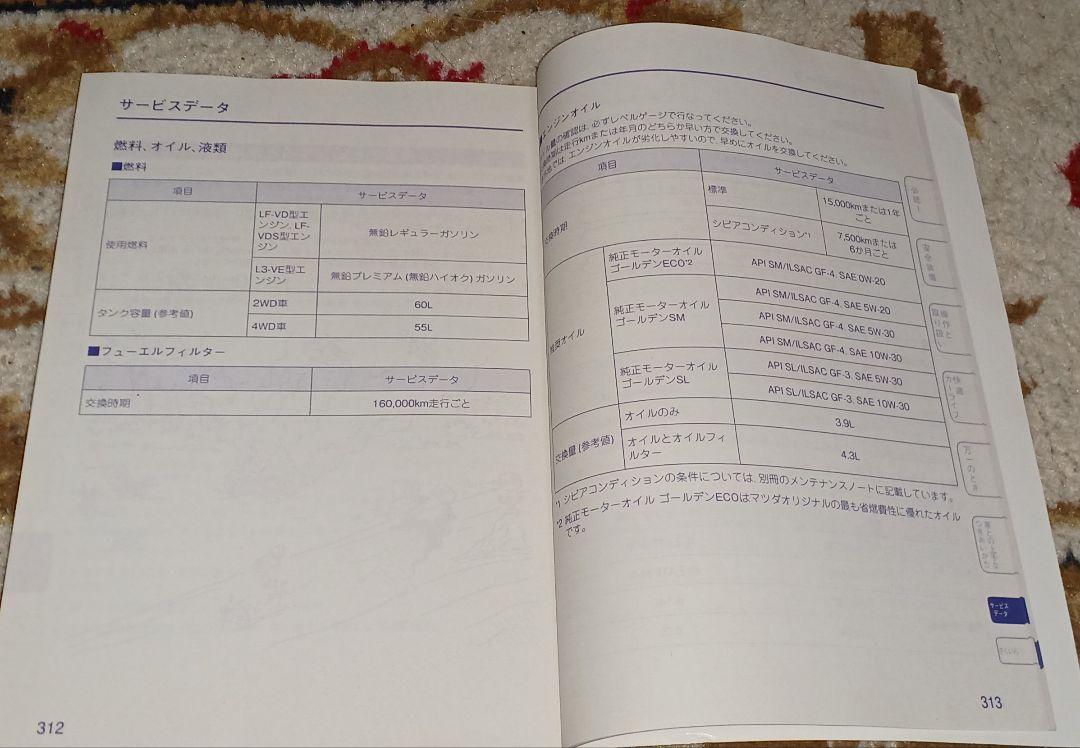 サービスデータ
燃料、オイル、液類
■燃料
項目 サービスデータ
使用燃料
LF-VD型エ
ンジン、LF-
VDS型エン
ジン
無鉛レギュラーガソリン
L3-VE型エ
ンジン
無鉛プレミアム (無鉛ハイオク) ガソリン
タンク容量 (参考値)
2WD車 60L
4WD車 55L
■フューエルフィルター
項目 サービスデータ
交換時期 160,000km走行ごと
312
エンジンオイル
量の確認は、必ずレベルゲージで行なってください。
は走行kmまたは年月のどちらか早い方で交換してください。
では、エンジンオイルが劣化しやすいので、早めにオイルを交換してください。
項目 サービスデータ
交換時期
標準
15,000kmまたは1年
ごと
シビアコンディション*1
7,500kmまたは
6か月ごと
オイル
純正モーターオイル
ゴールデンECO*2
API SM/ILSAC GF-4. SAE 0W-20
純正モーターオイル
ゴールデンSM
API SM/ILSAC GF-4. SAE 5W-20
API SM/ILSAC GF-4. SAE 5W-30
API SM/ILSAC GF-4. SAE 10W-30
純正モーターオイル
ゴールデンSL
API SL/ILSAC GF-3. SAE 5W-30
API SL/ILSAC GF-3. SAE 10W-30
交換量 (参考値)
オイルのみ 3.9L
オイルとオイルフィ
ルター
4.3L
*1 シビアコンディションの条件については、別冊のメンテナンスノートに記載しています。
*2 純正モーターオイル ゴールデンECOはマツダオリジナルの最も省燃費性に優れたオイル
です。
必読!
安全装備
操作と
取り扱い
快適
カーライフ
万一のとき
車との上手な
つきあいかた
サービス
データ
さくいん
313